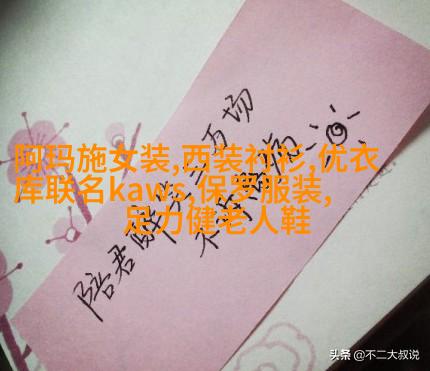 阿玛施女装,西装衬衫,优衣
库联名kaws,保罗服装,
足力健老人鞋
陪君醉笑三万场
不诉离殇
头条 @不二大叔说